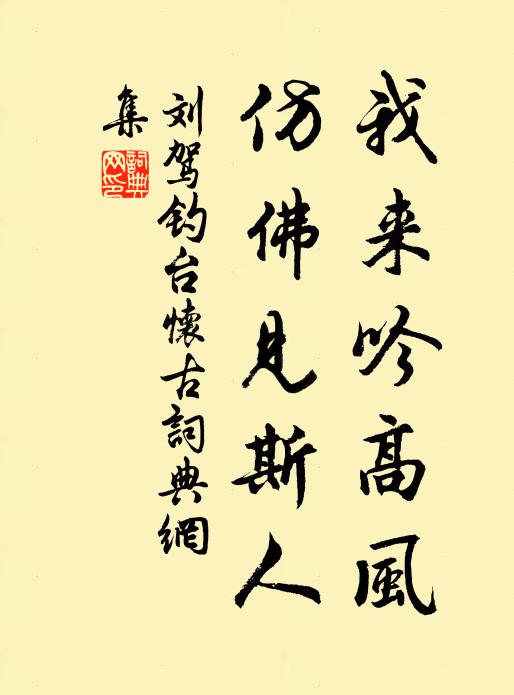 我来吟高風
仿佛見斯人
刘驾钓台懷古詞典網
集
詞典
网印